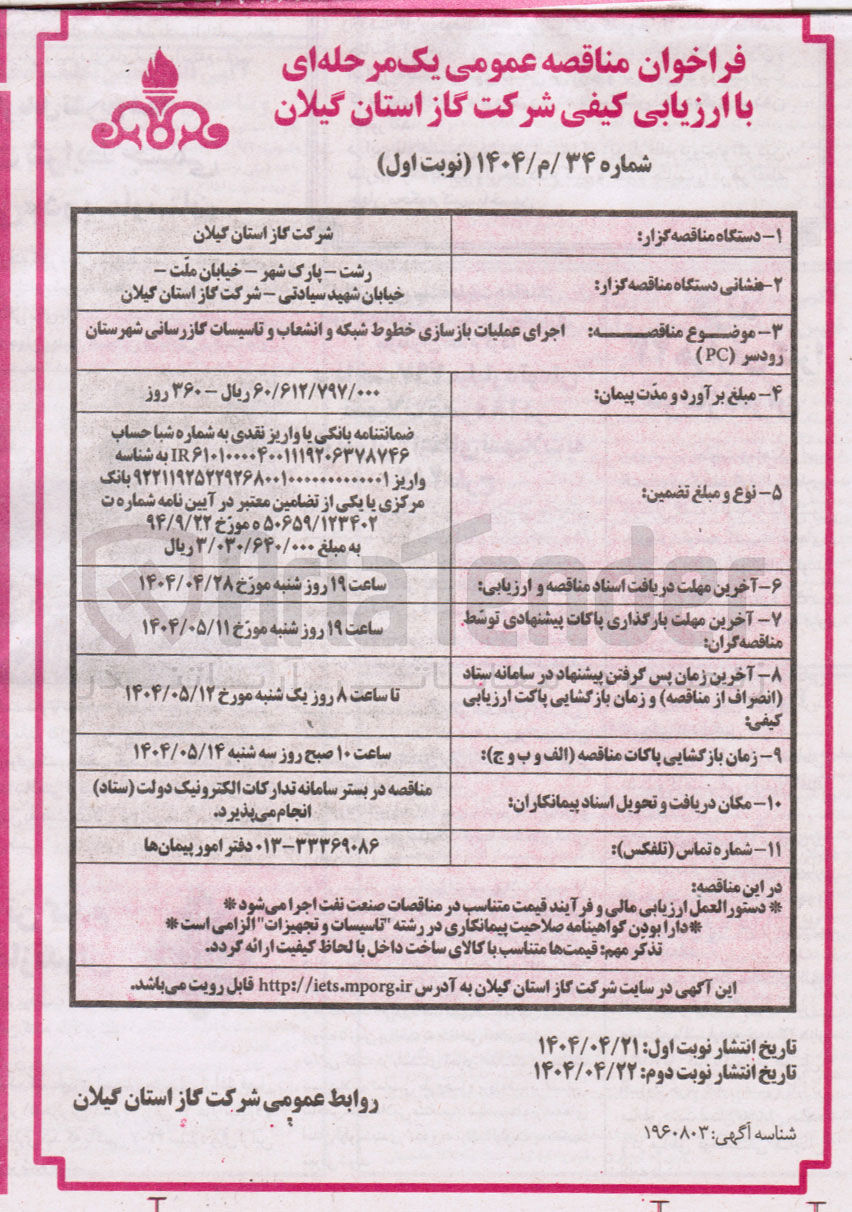 فراخوان مناقصه عمومی یک‌مرحله‌ای
با ارزیابی کیفی شرکت گاز استان گیلان
شماره ۳۴ /م/۱۴۰۴ (نوبت اول)
۱- دستگاه مناقصه‌گزار: شرکت گاز استان گیلان
۲- نشانی دستگاه مناقصه‌گزار: رشت - پارک شهر - خیابان ملّت -
خیابان شهید سیادتی - شرکت گاز استان گیلان
۳- موضوع مناقصه: اجرای عملیات بازسازی خطوط شبکه و انشعاب و تاسیسات گازرسانی شهرستان
رودسر (PC)
۴- مبلغ برآورد و مدّت پیمان: ۶۰/۶۱۲/۷۹۷/۰۰۰ ریال - ۳۶۰ روز
۵- نوع و مبلغ تضمین:
ضمانتنامه بانکی یا واریز نقدی به شماره شبا حساب
IR۶۱۰۱۰۰۰۰۴۰۰۱۱۱۹۲۰۶۳۷۸۷۴۶ به شناسه
واریز ۹۲۲۱۱۹۲۵۲۲۹۲۶۸۰۰۱۰۰۰۰۰۰۰۰۰۰۰۰۱ بانک
مرکزی یا یکی از تضامین معتبر در آیین نامه شماره ت
۵۰۶۵۹/۱۲۳۴۰۲ ه مورّخ ۹۴/۹/۲۲
به مبلغ ۳/۰۳۰/۶۴۰/۰۰۰ ریال
۶- آخرین مهلت دریافت اسناد مناقصه و ارزیابی: ساعت ۱۹ روز شنبه مورّخ ۱۴۰۴/۰۴/۲۸
۷- آخرین مهلت بارگذاری پاکات پیشنهادی توسّط
مناقصه‌گران: ساعت ۱۹ روز شنبه مورّخ ۱۴۰۴/۰۵/۱۱
۸- آخرین زمان پس گرفتن پیشنهاد در سامانه ستاد
(انصراف از مناقصه) و زمان بازگشایی پاکت ارزیابی
کیفی: تا ساعت ۸ روز یک شنبه مورخ ۱۴۰۴/۰۵/۱۲
۹- زمان بازگشایی پاکات مناقصه (الف و ب و ج): ساعت ۱۰ صبح روز سه شنبه ۱۴۰۴/۰۵/۱۴
۱۰- مکان دریافت و تحویل اسناد پیمانکاران: مناقصه در بستر سامانه تدارکات الکترونیک دولت (ستاد)
انجام می‌پذیرد.
۱۱- شماره تماس (تلفکس): ۰۱۳-۳۳۳۶۹۰۸۶ دفتر امور پیمان‌ها
در این مناقصه:
* دستورالعمل ارزیابی مالی و فرآیند قیمت متناسب در مناقصات صنعت نفت اجرا می‌شود *
*دارا بودن گواهینامه صلاحیت پیمانکاری در رشته "تاسیسات و تجهیزات" الزامی است *
تذکر مهم: قیمت‌ها متناسب با کالای ساخت داخل با لحاظ کیفیت ارائه گردد.
این آگهی در سایت شرکت گاز استان گیلان به آدرس http://iets.mporg.ir قابل رویت می‌باشد.
تاریخ انتشار نوبت اول: ۱۴۰۴/۰۴/۲۱
تاریخ انتشار نوبت دوم: ۱۴۰۴/۰۴/۲۲
روابط عمومی شرکت گاز استان گیلان
شناسه آگهی: ۱۹۶۰۸۰۳